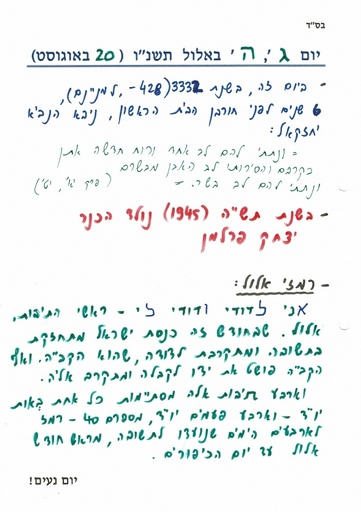 בס"ד
יום ג', ה' באלול תשנ"ו (20 באוגוסט)
- ביום זה, בשנת 3332 (428-, למנינם),
6 שנים לפני חורבן הבית הראשון, ניבא הנביא
יחזקאל:
"ונתתי להם לב אחד ורוח חדשה אתן
בקרבכם והסירותי לב האבן מבשרם
ונתתי להם לב בשר." (פרק י"א, י"ט)
- בשנת תש"ה (1945) נולד הכנר
יצחק פרלמן
- רמזי אלול:
אני לדודי ודודי לי - ראשי התיבות,
אלול. שבחודש זה כנסת ישראל מתחזקת
בתשובה ומתקרבת לדודה, שהוא הקב"ה. ואף
הקב"ה פושט את ידו לקבלה ומתקרב אליה.
וארבע תיבות אלה מסתיימות כל אחת באות
יו"ד - וארבע פעמים יו"ד, מספרם 40 - רמז
לארבעים הימים שנועדו לתשובה, מראש חודש
אלול עד יום הכיפורים.
יום נעים!